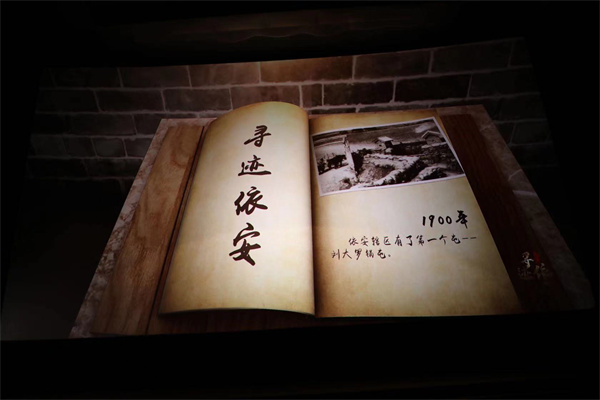 寻迹依安
1900年
依安辖区有了第一个屯——
刘大罗锅屯。